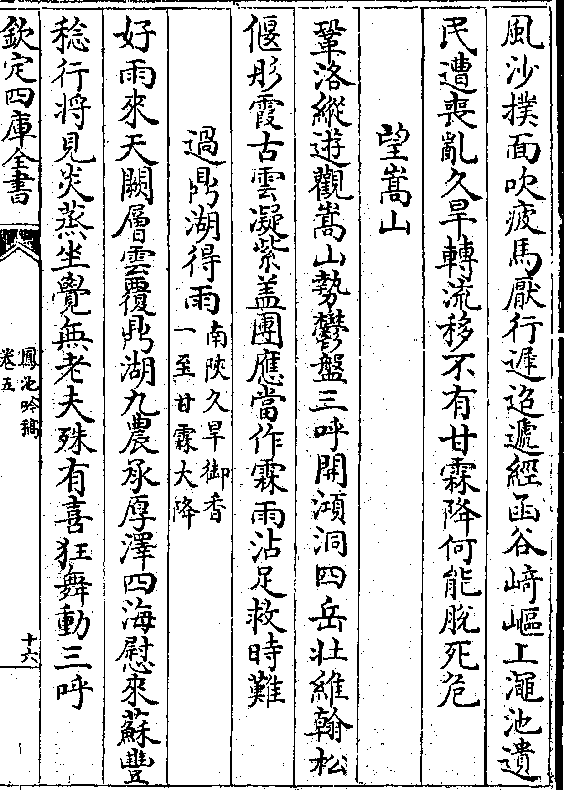 風沙撲面吹疲馬厭行遲迢遞經函谷﨑嶇上澠池遺
民遭喪亂久旱轉流移不有甘霖降何能脫死危
望嵩山
鞏洛縱遊觀嵩山勢鬱盤三呼開澒洞四岳壯維翰松
偃彤霞古雲凝紫盖團應當作霖雨沾足救時難
過鼎湖得雨
南陜久旱御香
一至甘霖大降
好雨來天闕層雲覆鼎湖九農承厚澤四海慰來蘇豐
稔行將見炎蒸坐覺無老夫殊有喜狂舞動三呼
欽定四庫全書
鳳池吟稿
卷五
十六